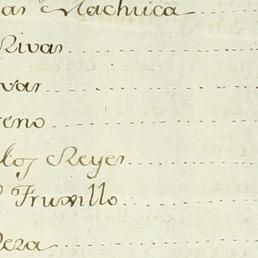 as Machuca
Rivas
var
reno
los Reyes
Truxillo
Vera